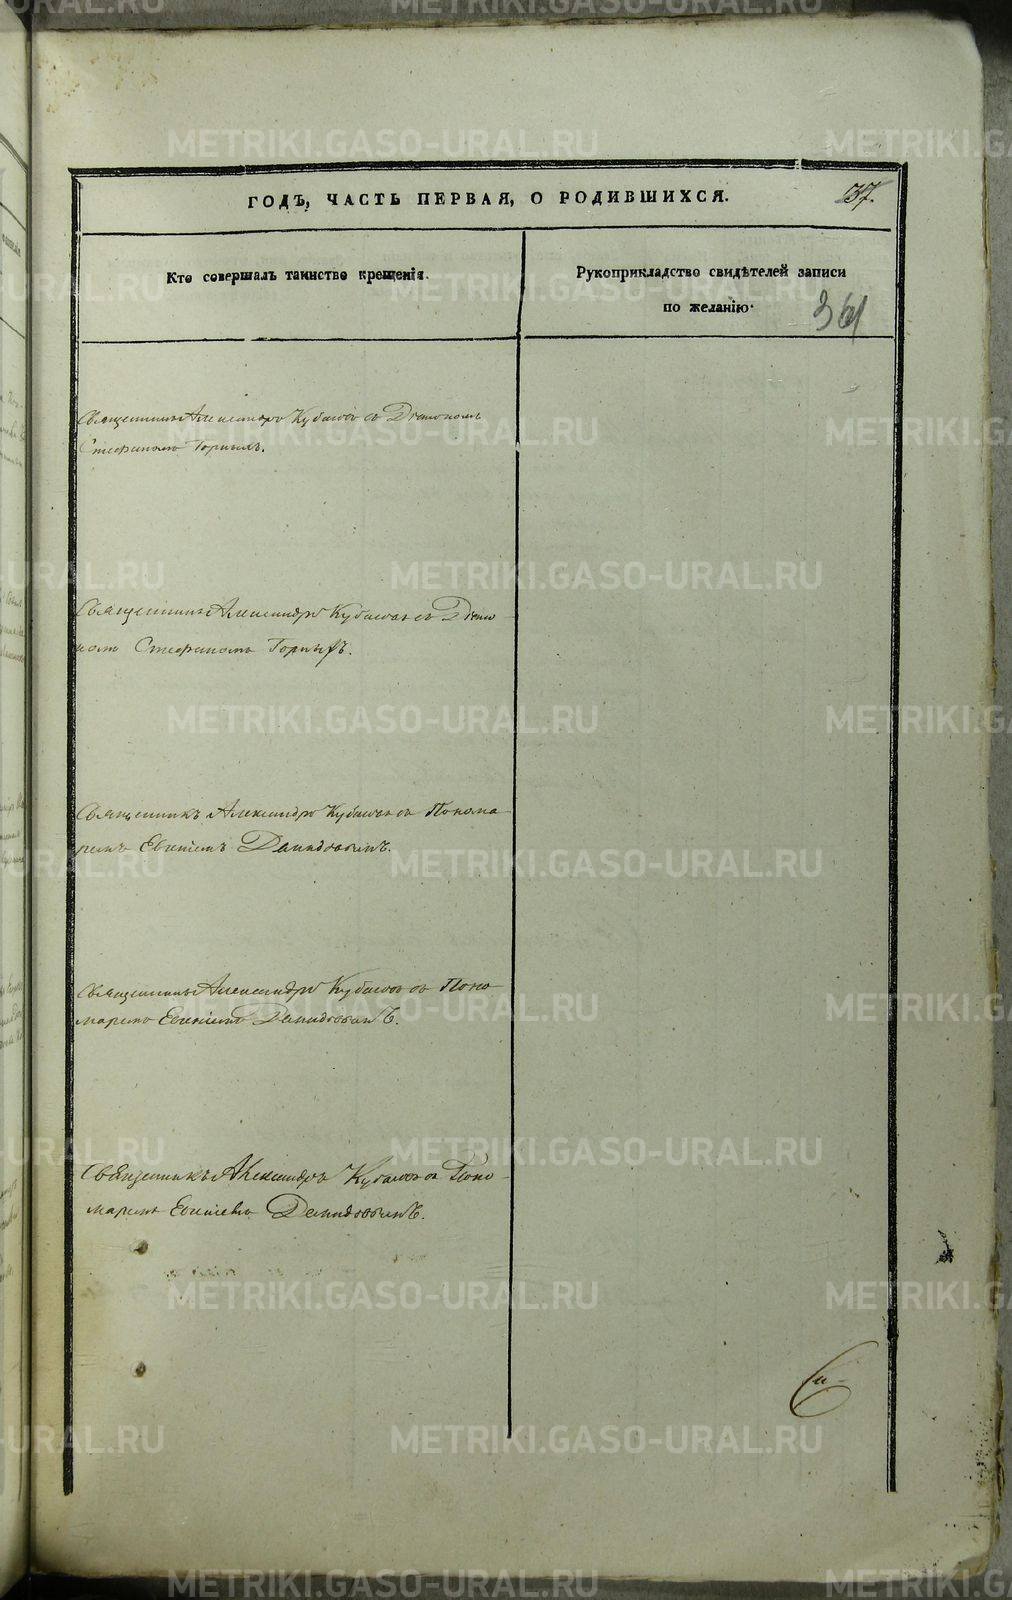 ГОДЪ, ЧАСТЬ ПЕРВАЯ, О РОДИВШИХСЯ.
37.
Кто совершалъ таинство крещенія.
Рукоприкладство свидѣтелей записи
по желанію.
361
Священникъ Александръ Кубасовъ съ Діакономъ
Стефаномъ Горныхъ.
Священникъ Александръ Кубасовъ съ Діако
номъ Стефаномъ Горныхъ.
Священникъ Александръ Кубасовъ съ Понома
ремъ Давидовымъ.
Священникъ Александръ Кубасовъ съ Поно
маремъ Давидовымъ.
Священникъ Александръ Кубасовъ съ Поно-
маремъ Давидовымъ.
METRIKI.GASO-URAL.RU